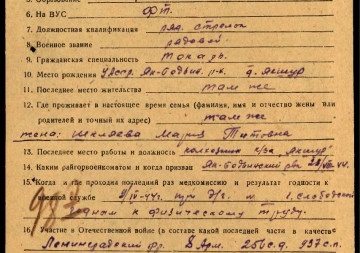 6. На ВУС фт.
7. Должностная квалификация ряд. стрелок
8. Военное звание рядовой
9. Гражданская специальность токарь
10. Место рождения УАССР, Як-Бодьин. р-н. д. Якшур
11. Последнее место жительства там же
12. Где проживает в настоящее время семья (фамилия, имя и отчество жены или
родителей и точный их адрес) там же
жена: Шкляева Мария Титовна
13. Последнее место работы и должность колхозник с/за "Якшур"
14. Каким райгорвоенкоматом и когда призван Як-Бодьинский рвк
15. Когда проходил последний раз медкомиссию и результат годности к
военной службе 44г. г. Слободской
годным к физическому труду.
983
16. Участие в Отечественной войне (в составе какой последней части в качестве
Ленинградский фр. 8 Арм. 256 с.д. 937 с.п.